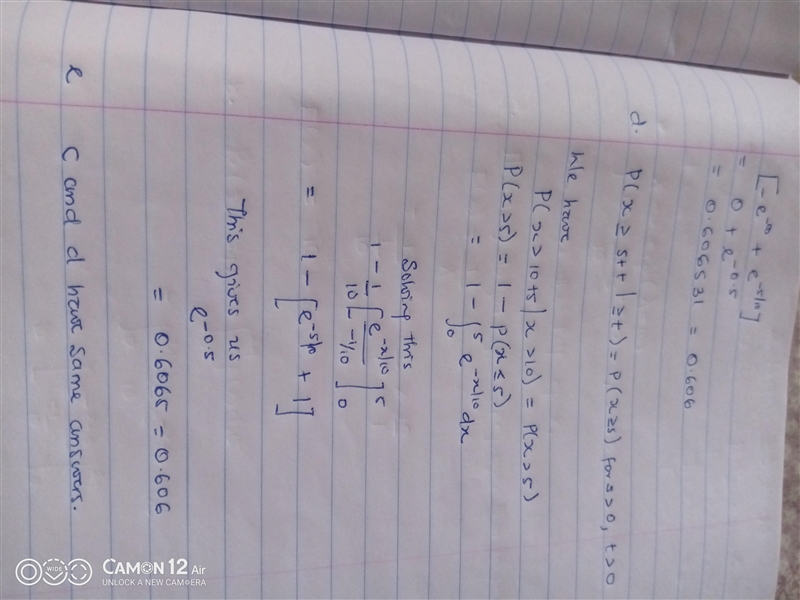 [-e^-∞ + e^-5/10]
= 0 + e^-0.5
= 0.606531 = 0.606
d. P(x ≥ s+t | ≥ t) = P(x ≥ s) for s > 0, t > 0
We have
P(x > 10+5 | x > 10) = P(x > 5)
P(x > 5) = 1 - P(x ≤ 5)
= 1 - ∫₀⁵ e^-x/10 dx
Solving this
1 - 1/10 [e^-x/10 / -1/10]₀⁵
= 1 - [e^-5/10 + 1]
This gives us
e^-0.5
= 0.6065 = 0.606
e C and d have same answers.
WIDE CAMON 12 Air
UNLOCK A NEW CAMERA